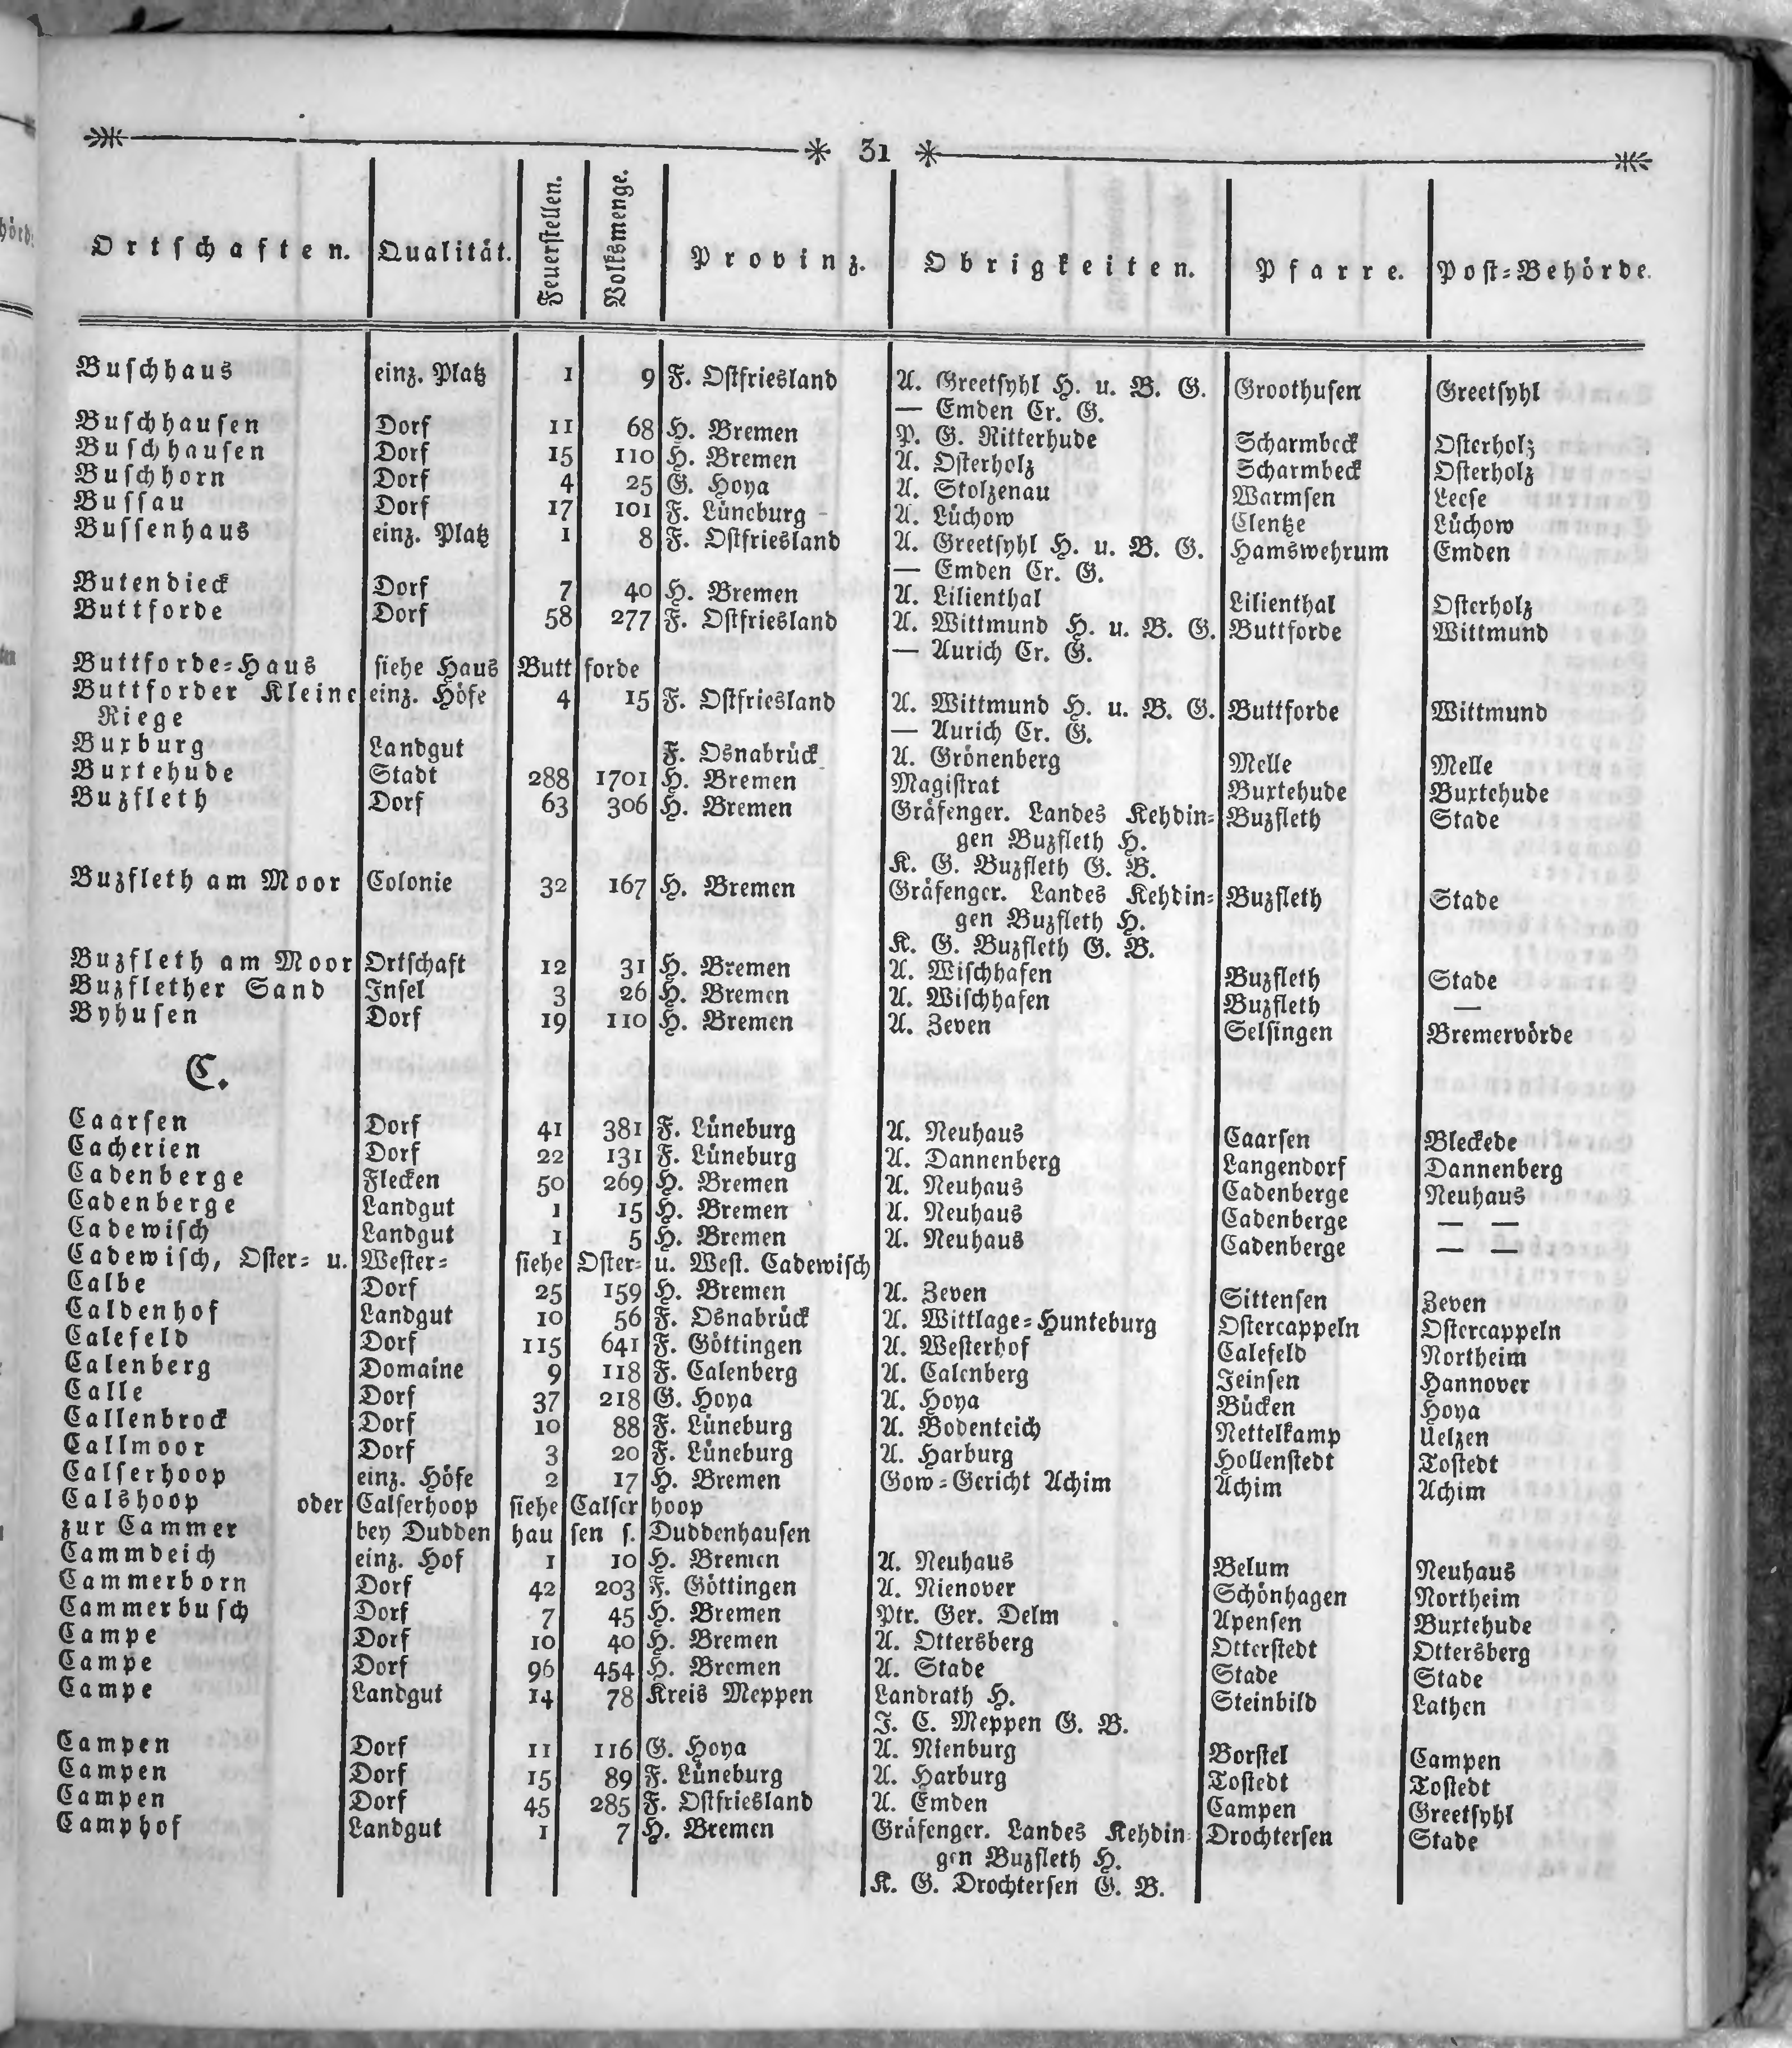 31
Ortschaften. Qualität. Feuerstellen. Volksmenge. Provinz. Obrigkeiten. Pfarre. Post-Behörde.
Buschhaus einz. Platz 1 9 F. Ostfriesland A. Greetsyhl H. u. B. G. Groothusen Greetsyhl
— Emden Cr. G.
Buschhausen Dorf 11 68 H. Bremen P. G. Ritterhude Scharmbeck Osterholz
Buschhausen Dorf 15 110 H. Bremen A. Osterholz Scharmbeck Osterholz
Buschhorn Dorf 4 25 G. Hoya A. Stolzenau Warmsen Leese
Bussau Dorf 17 101 F. Lüneburg A. Lüchow Clentze Lüchow
Bussenhaus einz. Platz 1 8 F. Ostfriesland A. Greetsyhl H. u. B. G. Hamswehrum Emden
— Emden Cr. G.
Butendieck Dorf 7 40 H. Bremen A. Lilienthal Lilienthal Osterholz
Buttforde Dorf 58 277 F. Ostfriesland A. Wittmund H. u. B. G. Buttforde Wittmund
— Aurich Cr. G.
Buttforde-Haus siehe Haus Buttforde
Buttforder Kleine einz. Höfe 4 15 F. Ostfriesland A. Wittmund H. u. B. G. Buttforde Wittmund
Riege — Aurich Cr. G.
Buxburg Landgut F. Osnabrück A. Grönenberg Melle Melle
Buxtehude Stadt 288 1701 H. Bremen Magistrat Buxtehude Buxtehude
Buzfleth Dorf 63 306 H. Bremen Gräfenger. Landes Kehdin- Buzfleth Stade
gen Buzfleth H.
K. G. Buzfleth G. B.
Buzfleth am Moor Colonie 32 167 H. Bremen Gräfenger. Landes Kehdin- Buzfleth Stade
gen Buzfleth H.
K. G. Buzfleth G. B.
Buzfleth am Moor Ortschaft 12 31 H. Bremen A. Wischhafen Buzfleth Stade
Buzflether Sand Insel 3 26 H. Bremen A. Wischhafen Buzfleth —
Byhusen Dorf 19 110 H. Bremen A. Zeven Selsingen Bremervörde
C.
Caarsen Dorf 41 381 F. Lüneburg A. Neuhaus Caarsen Bleckede
Cacherien Dorf 22 131 F. Lüneburg A. Dannenberg Langendorf Dannenberg
Cadenberge Flecken 50 269 H. Bremen A. Neuhaus Cadenberge Neuhaus
Cadenberge Landgut 1 15 H. Bremen A. Neuhaus Cadenberge — —
Cadewisch Landgut 1 5 H. Bremen A. Neuhaus Cadenberge — —
Cadewisch, Oster- u. Wester- siehe Oster- u. West. Cadewisch
Calbe Dorf 25 159 H. Bremen A. Zeven Sittensen Zeven
Caldenhof Landgut 10 56 F. Osnabrück A. Wittlage-Hunteburg Ostercappeln Ostercappeln
Calefeld Dorf 115 641 F. Göttingen A. Westerhof Calefeld Northeim
Calenberg Domaine 9 118 F. Calenberg A. Calenberg Jeinsen Hannover
Calle Dorf 37 218 G. Hoya A. Hoya Bücken Hoya
Callenbrock Dorf 10 88 F. Lüneburg A. Bodenteich Nettelkamp Uelzen
Callmoor Dorf 3 20 F. Lüneburg A. Harburg Hollenstedt Tostedt
Calserhoop einz. Höfe 2 17 H. Bremen Gow-Gericht Achim Achim Achim
Calshoop oder Calserhoop siehe Calserhoop
zur Cammer bey Duddenhausen s. Duddenhausen
Cammdeich einz. Hof 1 10 H. Bremen A. Neuhaus Belum Neuhaus
Cammerborn Dorf 42 203 F. Göttingen A. Nienover Schönhagen Northeim
Cammerbusch Dorf 7 45 H. Bremen Ptr. Ger. Delm Apensen Buxtehude
Campe Dorf 10 40 H. Bremen A. Ottersberg Otterstedt Ottersberg
Campe Dorf 96 454 H. Bremen A. Stade Stade Stade
Campe Landgut 14 78 Kreis Meppen Landrath H. Steinbild Lathen
J. C. Meppen G. B.
Campen Dorf 11 116 G. Hoya A. Nienburg Borstel Campen
Campen Dorf 15 89 F. Lüneburg A. Harburg Tostedt Tostedt
Campen Dorf 45 285 F. Ostfriesland A. Emden Campen Greetsyhl
Camphof Landgut 1 7 H. Bremen Gräfenger. Landes Kehdin- Drochtersen Stade
gen Buzfleth H.
K. G. Drochtersen G. B.